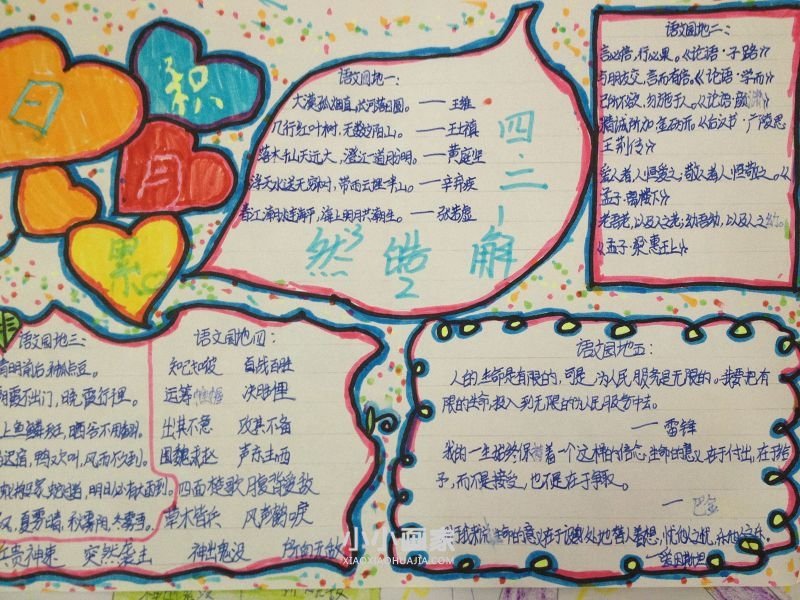 日
积
月
累
语文园地一：
大漠孤烟直，长河落日圆。——王维
几行红叶树，无数夕阳山。——王士禛
落木千山天远大，澄江一道月分明。——黄庭坚
浮天水送无穷树，带雨云埋一半山。——辛弃疾
春江潮水连海平，海上明月共潮生。——张若虚
四·二
解
然
语文园地二：
言必信，行必果。《论语·子路》
与朋友交，言而有信。《论语·学而》
己所不欲，勿施于人。《论语·颜渊》
精诚所加，金石为开。《后汉书·广陵思
王荆传》
爱人者，人恒爱之；敬人者，人恒敬之。《
孟子·离娄下》
老吾老，以及人之老；幼吾幼，以及人之幼。
《孟子·梁惠王上》
语文园地三：
清明前后 种瓜点豆。
朝霞不出门，晚霞行千里。
上鱼鳞斑，晒谷不用翻。
迟宿，鸭欢叫，风雨不久到。
蛇过道，明日必有大雨到。
夏雾晴，秋雾阴，冬雾雪。
兵贵神速 突然袭击
语文园地四：
知己知彼 百战百胜
运筹帷幄 决胜千里
出其不意 攻其不备
围魏救赵 声东击西
四面楚歌 腹背受敌
草木皆兵 风声鹤唳
神出鬼没 所向无敌
语文园地五：
人的生命是有限的，可是，为人民服务是无限的。我要把有
限的生命，投入到无限的为人民服务中去。
——雷锋
我的一生始终保持着一个这样的信念，生命的意义在于付出，在于给
予，而不是接受，也不是在于争取。
——巴金
生命的意义在于设身处地替人着想，忧他人之忧，乐他人之乐。
——爱因斯坦
小小画家
XIAOXIAOHUAJIA.COM